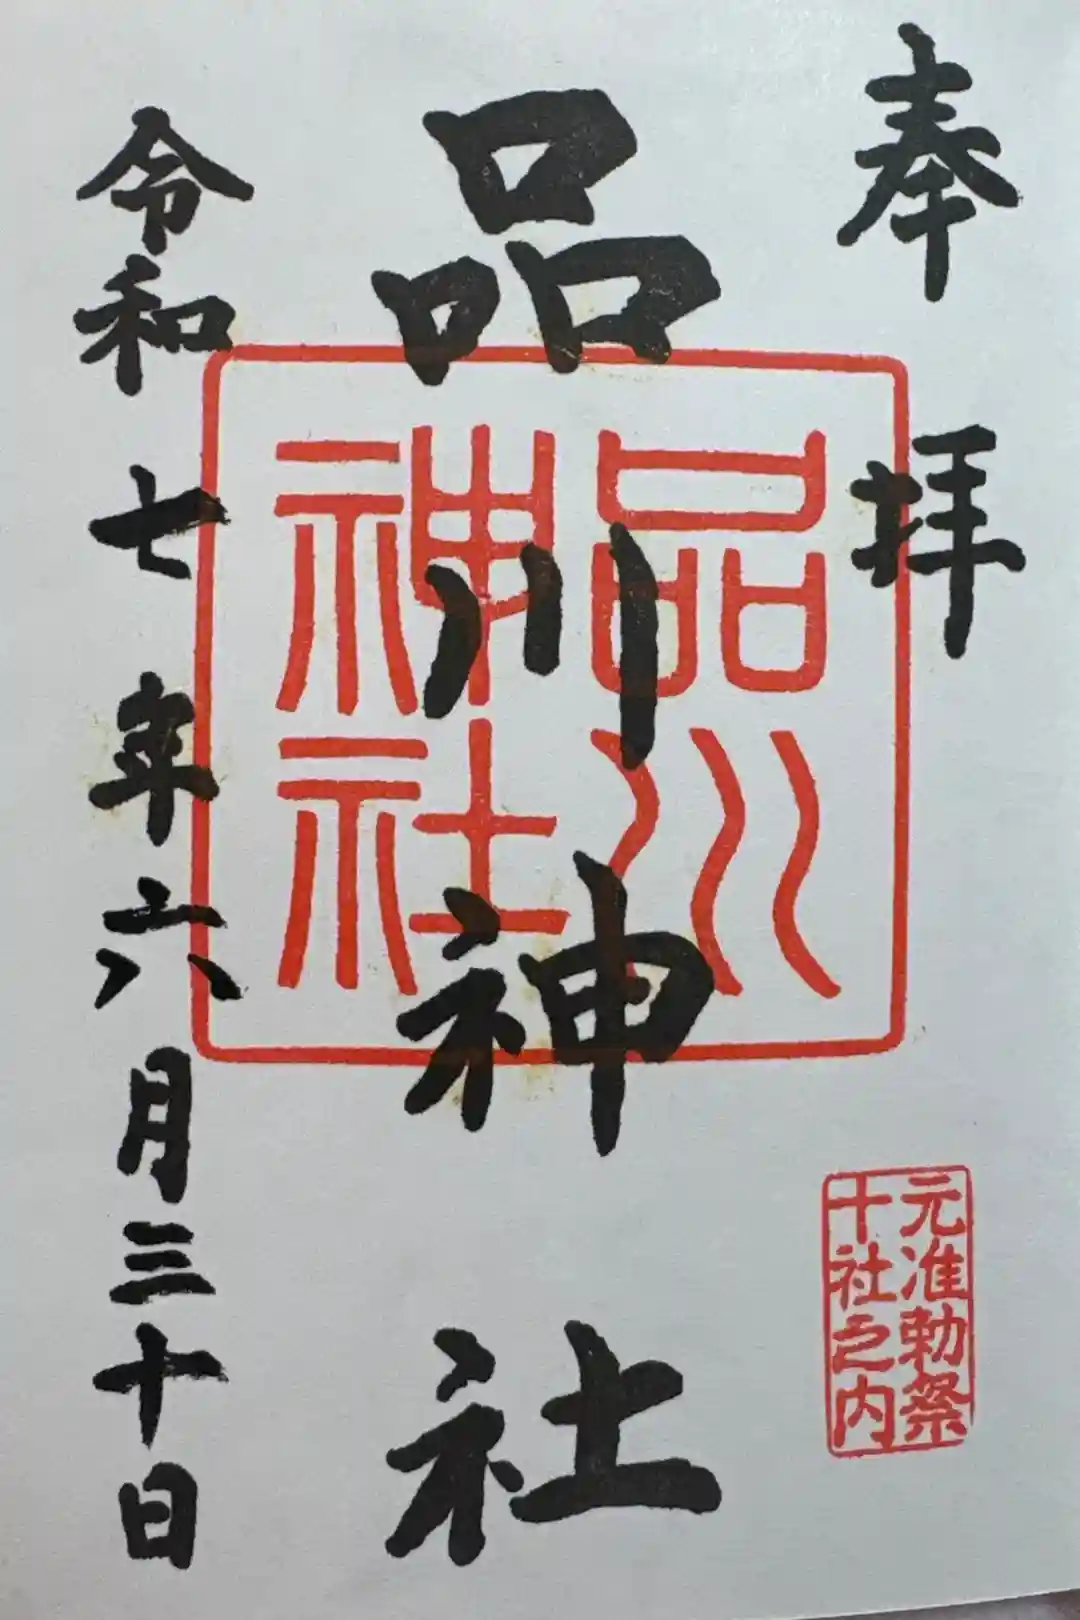 奉拝
品川神社
品川
神社
元准勅祭
十社之内
令和七年六月三十日